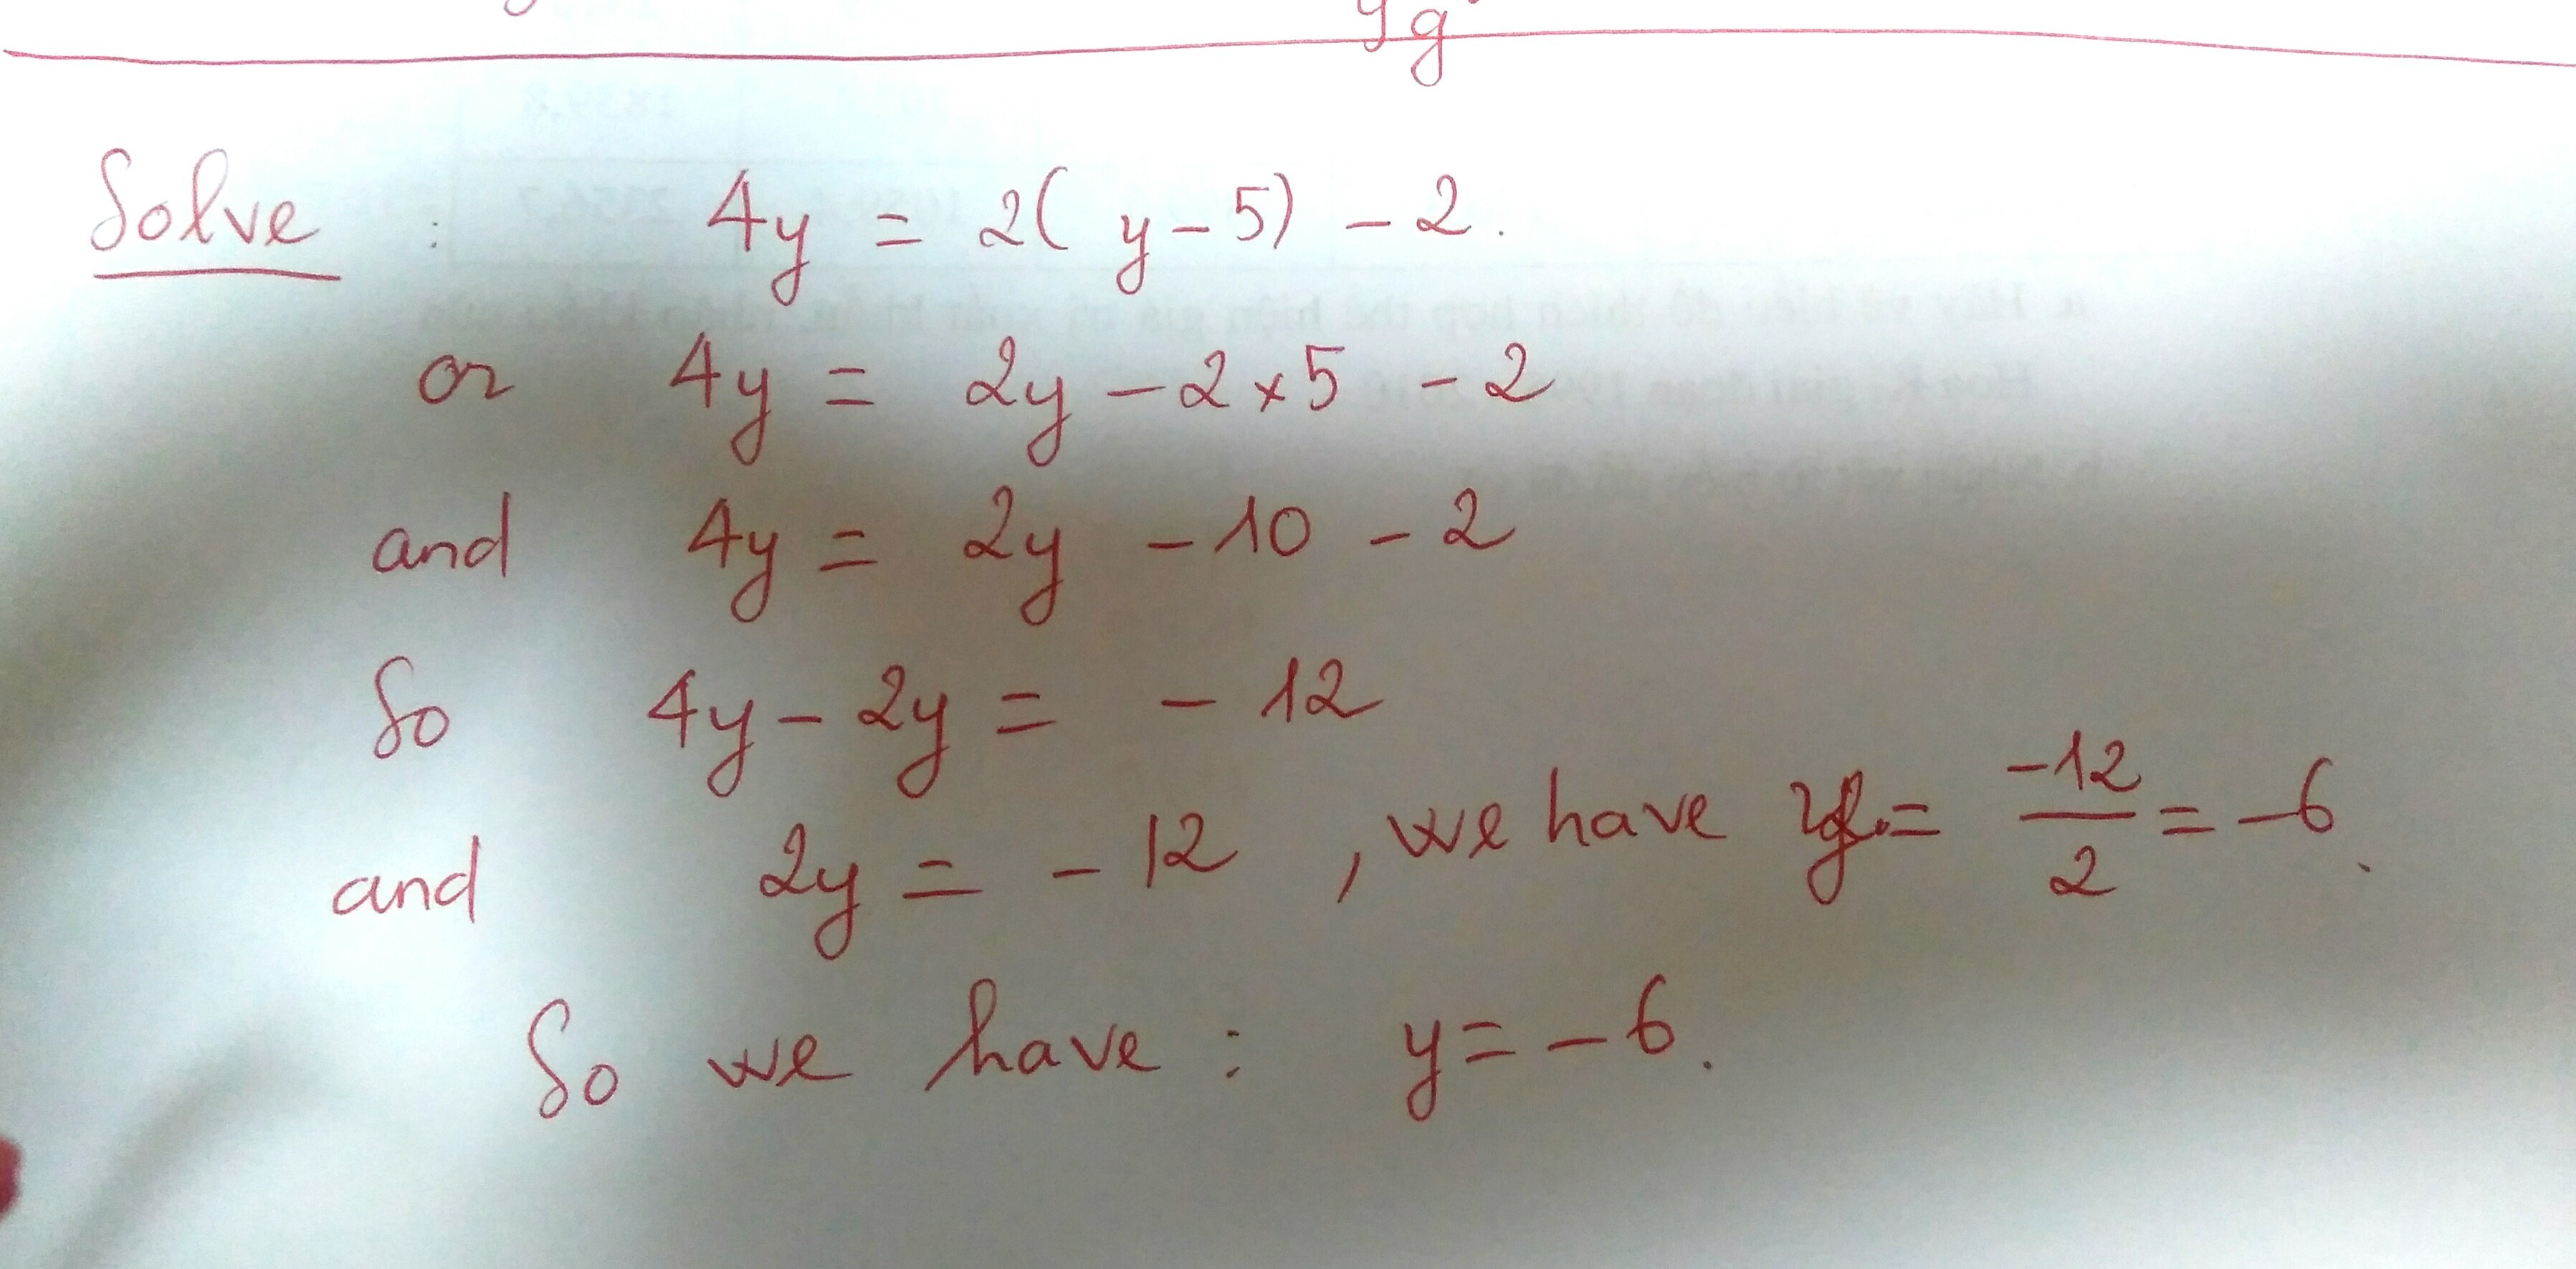 9g
Solve : 4y = 2( y - 5) - 2.
or 4y = 2y - 2 x 5 - 2
and 4y = 2y - 10 - 2
So 4y - 2y = - 12
and 2y = - 12 , we have y = -12/2 = -6.
So we have : y = - 6.